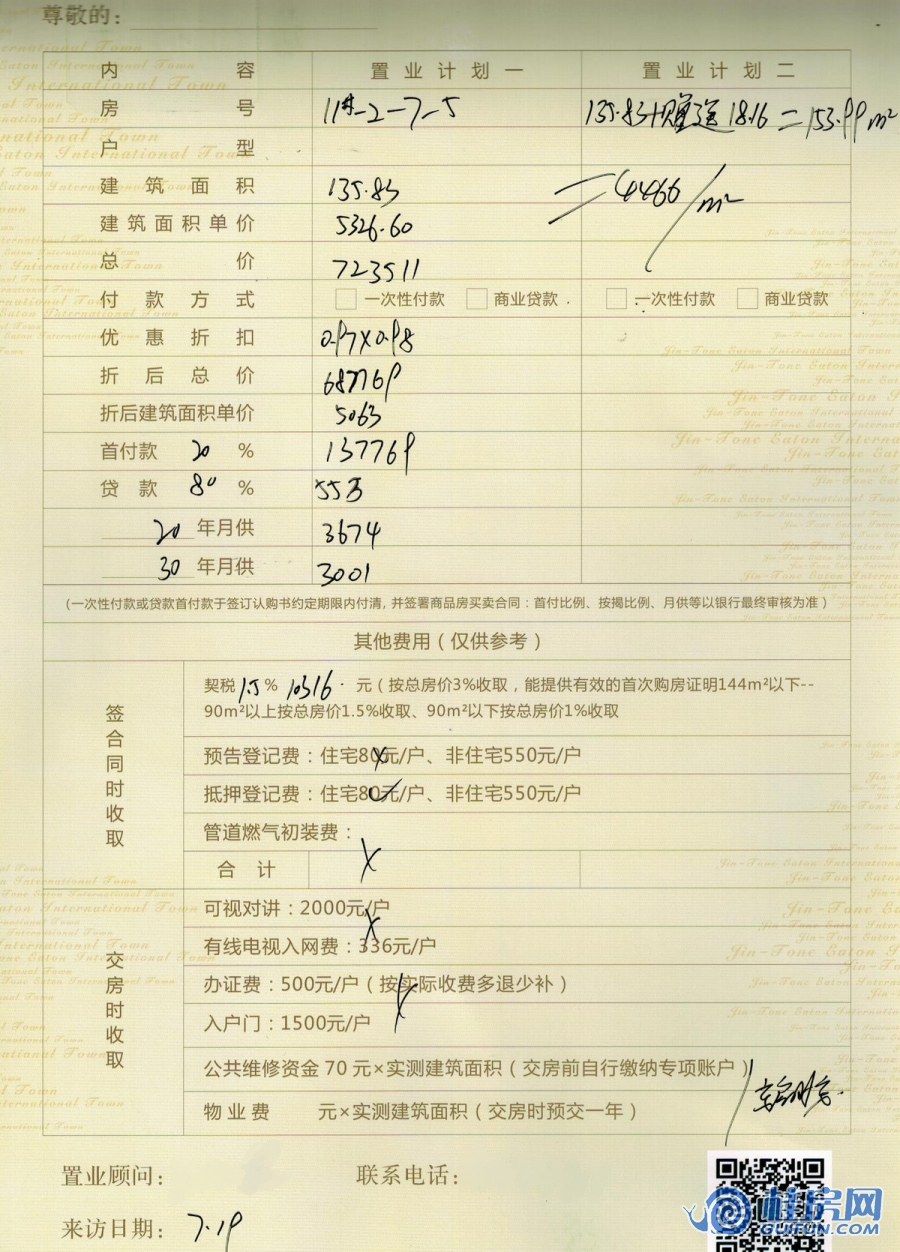 尊敬的：
内 容 置业计划一 置业计划二
房 号 11#-2-7-5 135.83+赠送18.16=153.99m²
户 型
建筑面积 135.83 =4466/m²
建筑面积单价 5326.60
总 价 723511
付款方式 一次性付款 商业贷款 一次性付款 商业贷款
优惠折扣 0.97×0.98
折后总价 687769
折后建筑面积单价 5063
首付款 20 % 137769
贷款 80 % 55万
20 年月供 3674
30 年月供 3001
（一次性付款或贷款首付款于签订认购书约定期限内付清，并签署商品房买卖合同：首付比例、按揭比例、月供等以银行最终审核为准）
其他费用（仅供参考）
签合同时收取
契税 1.5 % 10316. 元（按总房价3%收取，能提供有效的首次购房证明144m²以下--
90m²以上按总房价1.5%收取、90m²以下按总房价1%收取
预告登记费：住宅80元/户、非住宅550元/户
抵押登记费：住宅80元/户、非住宅550元/户
管道燃气初装费：
合 计
交房时收取
可视对讲：2000元/户
有线电视入网费：336元/户
办证费：500元/户（按实际收费多退少补）
入户门：1500元/户
公共维修资金70元×实测建筑面积（交房前自行缴纳专项账户）
物业费 元×实测建筑面积（交房时预交一年）
置业顾问： 联系电话：
来访日期： 7.19
桂房网
GUIFUN.COM